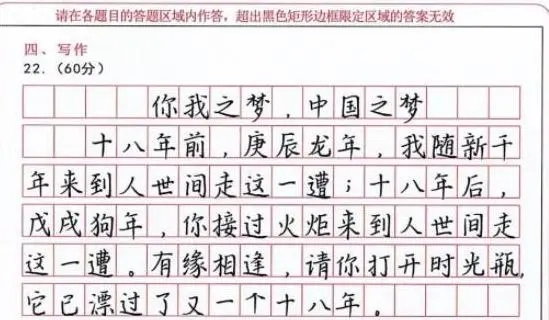 请在各题目的答题区域内作答，超出黑色矩形边框限定区域的答案无效
四、写作
22.（60分）
你我之梦，中国之梦
十八年前，庚辰龙年，我随新千
年来到人世间走这一遭；十八年后，
戊戌狗年，你接过火炬来到人世间走
这一遭。有缘相逢，请你打开时光瓶，
它已漂过了又一个十八年。